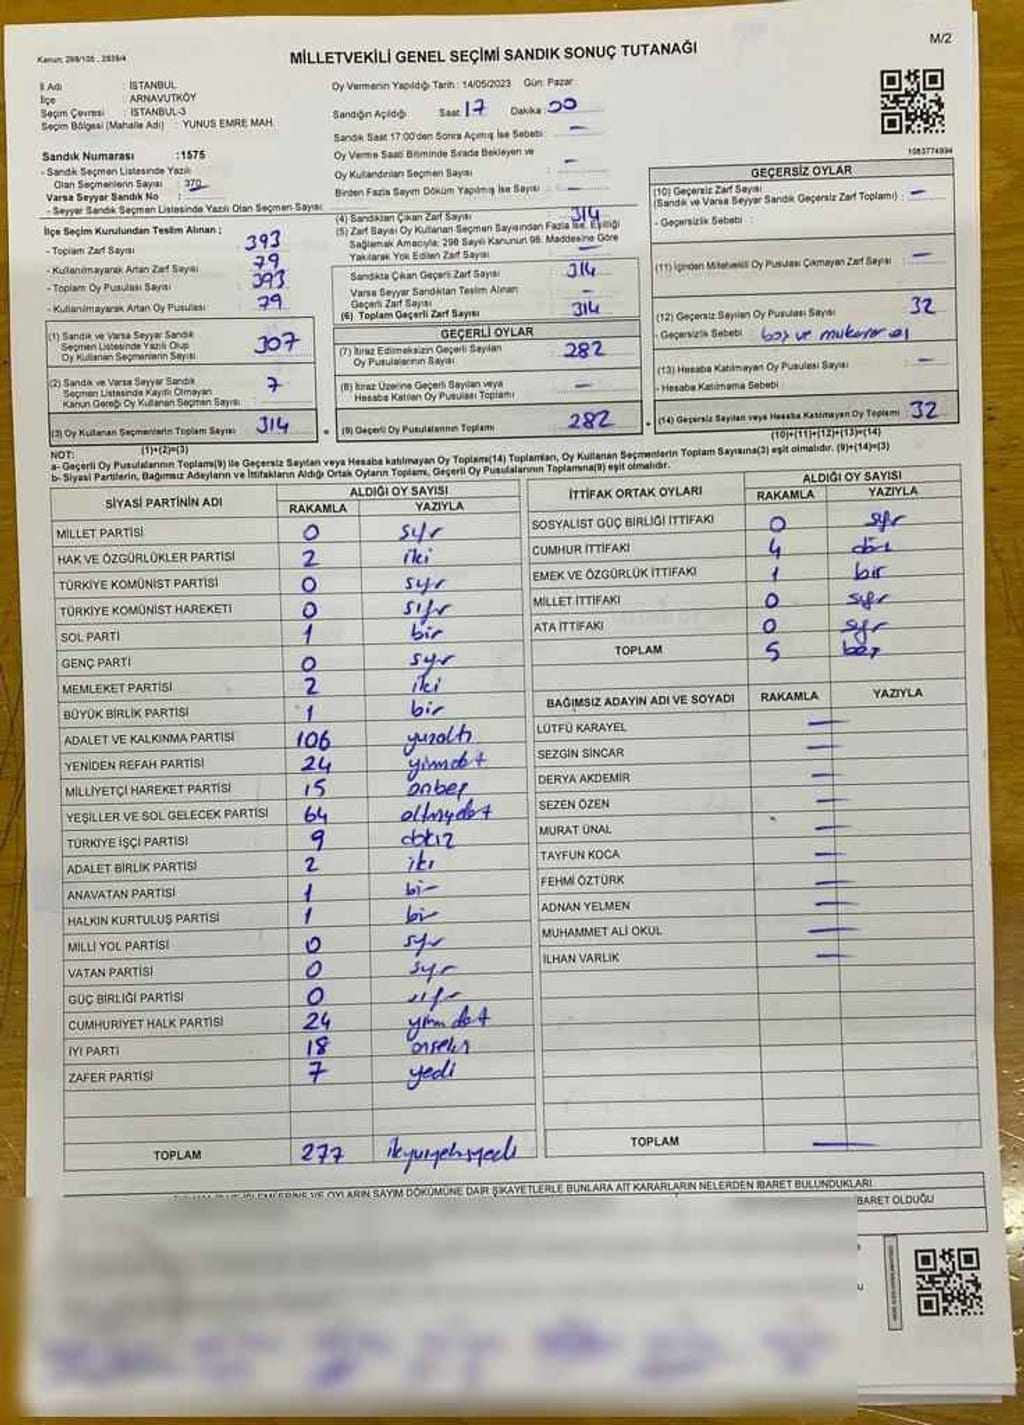 Kanun: 298/105 , 2839/4
MİLLETVEKİLİ GENEL SEÇİMİ SANDIK SONUÇ TUTANAĞI
M/2
İl Adı : İSTANBUL
İlçe : ARNAVUTKÖY
Seçim Çevresi : İSTANBUL-3
Seçim Bölgesi (Mahalle Adı) : YUNUS EMRE MAH.
Sandık Numarası :1575
- Sandık Seçmen Listesinde Yazılı
Olan Seçmenlerin Sayısı : 370
Varsa Seyyar Sandık No :
- Seyyar Sandık Seçmen Listesinde Yazılı Olan Seçmen Sayısı:
Oy Vermenin Yapıldığı Tarih : 14/05/2023 Gün: Pazar
Sandığın Açıldığı Saat: 17 Dakika: 00
Sandık Saat 17:00'den Sonra Açılmış İse Sebebi : —
Oy Verme Saati Bitiminde Sırada Bekleyen ve
Oy Kullandırılan Seçmen Sayısı : —
Birden Fazla Sayım Döküm Yapılmış İse Sayısı : —
1083774994
İlçe Seçim Kurulundan Teslim Alınan ;
- Toplam Zarf Sayısı : 393
- Kullanılmayarak Artan Zarf Sayısı : 79
- Toplam Oy Pusulası Sayısı : 393
- Kullanılmayarak Artan Oy Pusulası : 79
(1) Sandık ve Varsa Seyyar Sandık
Seçmen Listesinde Yazılı Olup
Oy Kullanan Seçmenlerin Sayısı : 307
(2) Sandık ve Varsa Seyyar Sandık
Seçmen Listesinde Kayıtlı Olmayan
Kanun Gereği Oy Kullanan Seçmen Sayısı : 7
(3) Oy Kullanan Seçmenlerin Toplam Sayısı : 314
(1)+(2)=(3)
(4) Sandıktan Çıkan Zarf Sayısı : 314
(5) Zarf Sayısı Oy Kullanan Seçmen Sayısından Fazla İse, Eşitliği
Sağlamak Amacıyla, 298 Sayılı Kanunun 98. Maddesine Göre
Yakılarak Yok Edilen Zarf Sayısı
Sandıkta Çıkan Geçerli Zarf Sayısı : 314
Varsa Seyyar Sandıktan Teslim Alınan
Geçerli Zarf Sayısı : —
(6) Toplam Geçerli Zarf Sayısı : 314
GEÇERLİ OYLAR
(7) İtiraz Edilmeksizin Geçerli Sayılan
Oy Pusulalarının Sayısı : 282
(8) İtiraz Üzerine Geçerli Sayılan veya
Hesaba Katılan Oy Pusulası Toplamı : —
(9) Geçerli Oy Pusulalarının Toplamı : 282
GEÇERSİZ OYLAR
(10) Geçersiz Zarf Sayısı
(Sandık ve Varsa Seyyar Sandık Geçersiz Zarf Toplamı) : —
- Geçersizlik Sebebi :
(11) İçinden Milletvekili Oy Pusulası Çıkmayan Zarf Sayısı : —
(12) Geçersiz Sayılan Oy Pusulası Sayısı : 32
- Geçersizlik Sebebi : boş ve mükerrer oy
(13) Hesaba Katılmayan Oy Pusulası Sayısı : —
- Hesaba Katılmama Sebebi
(14) Geçersiz Sayılan veya Hesaba Katılmayan Oy Toplamı : 32
(10)+(11)+(12)+(13)=(14)
NOT:
a- Geçerli Oy Pusulalarının Toplamı(9) ile Geçersiz Sayılan veya Hesaba katılmayan Oy Toplamı(14) Toplamları, Oy Kullanan Seçmenlerin Toplam Sayısına(3) eşit olmalıdır. (9)+(14)=(3)
b- Siyasi Partilerin, Bağımsız Adayların ve İttifakların Aldığı Ortak Oyların Toplamı, Geçerli Oy Pusulalarının Toplamına(9) eşit olmalıdır.
SİYASİ PARTİNİN ADI ALDIĞI OY SAYISI
RAKAMLA YAZIYLA
MİLLET PARTİSİ 0 sıfır
HAK VE ÖZGÜRLÜKLER PARTİSİ 2 iki
TÜRKİYE KOMÜNİST PARTİSİ 0 sıfır
TÜRKİYE KOMÜNİST HAREKETİ 0 sıfır
SOL PARTİ 1 bir
GENÇ PARTİ 0 sıfır
MEMLEKET PARTİSİ 2 iki
BÜYÜK BİRLİK PARTİSİ 1 bir
ADALET VE KALKINMA PARTİSİ 106 yüzaltı
YENİDEN REFAH PARTİSİ 24 yirmidört
MİLLİYETÇİ HAREKET PARTİSİ 15 onbeş
YEŞİLLER VE SOL GELECEK PARTİSİ 64 altmışdört
TÜRKİYE İŞÇİ PARTİSİ 9 dokuz
ADALET BİRLİK PARTİSİ 2 iki
ANAVATAN PARTİSİ 1 bir
HALKIN KURTULUŞ PARTİSİ 1 bir
MİLLİ YOL PARTİSİ 0 sıfır
VATAN PARTİSİ 0 sıfır
GÜÇ BİRLİĞİ PARTİSİ 0 sıfır
CUMHURİYET HALK PARTİSİ 24 yirmidört
İYİ PARTİ 18 onsekiz
ZAFER PARTİSİ 7 yedi
TOPLAM 277 ikiyüzyetmişyedi
İTTİFAK ORTAK OYLARI ALDIĞI OY SAYISI
RAKAMLA YAZIYLA
SOSYALİST GÜÇ BİRLİĞİ İTTİFAKI 0 sıfır
CUMHUR İTTİFAKI 4 dört
EMEK VE ÖZGÜRLÜK İTTİFAKI 1 bir
MİLLET İTTİFAKI 0 sıfır
ATA İTTİFAKI 0 sıfır
TOPLAM 5 beş
BAĞIMSIZ ADAYIN ADI VE SOYADI RAKAMLA YAZIYLA
LÜTFÜ KARAYEL —
SEZGİN SİNCAR —
DERYA AKDEMİR —
SEZEN ÖZEN —
MURAT ÜNAL —
TAYFUN KOCA —
FEHMİ ÖZTÜRK —
ADNAN YELMEN —
MUHAMMET ALİ OKUL —
İLHAN VARLIK —
TOPLAM —
VE OYLARIN SAYIM DÖKÜMÜNE DAİR ŞİKAYETLERLE BUNLARA AİT KARARLARIN NELERDEN İBARET BULUNDUKLARI
BARET OLDUĞU